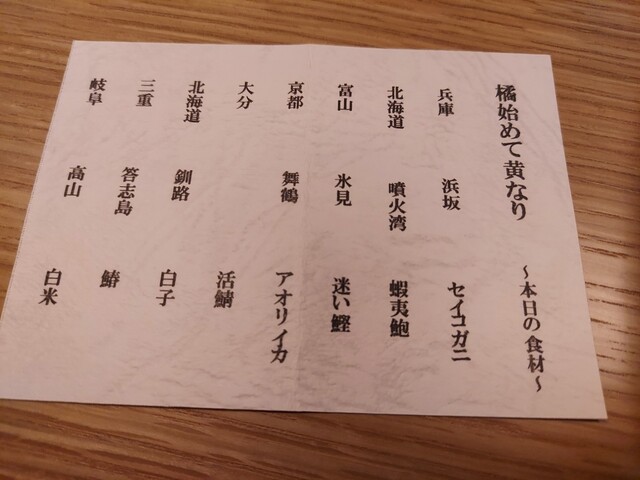 橘始めて黄なり ～本日の食材～
兵庫 浜坂 セイコガニ
北海道 噴火湾 蝦夷鮑
富山 氷見 迷い鰹
京都 舞鶴 アオリイカ
大分 活鯖
北海道 釧路 白子
三重 答志島 鰆
岐阜 高山 白米